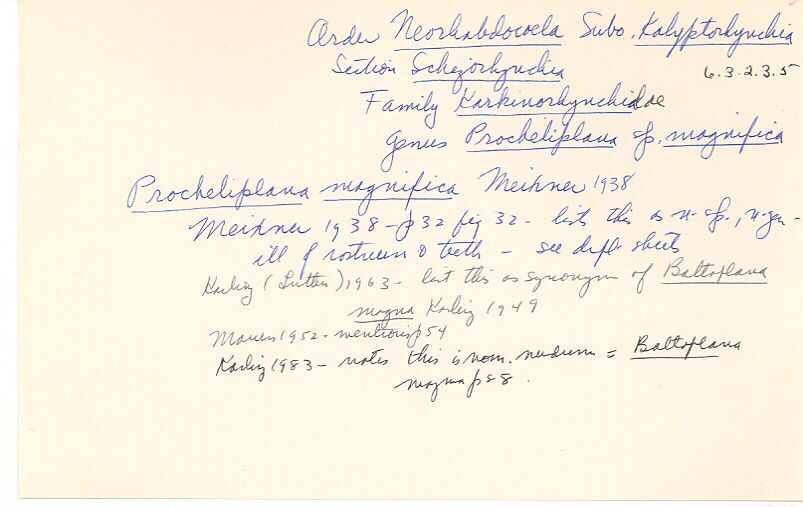 Order Neorhabdocoela Subo. Kalyptorhynchia
Section Schizorhynchia 6.3.2.3.5
Family Karkinorhynchidae
Genus Procheliplana sp. magnifica
Procheliplana magnifica Meixner 1938
Meixner 1938 - p 32 fig 32 - lists this as n. sp., n. gen -
ill of rostrum & teeth - see dupl. sheets
Karling (Luther) 1963 - list this as synonym of Baltoplana
magna Karling 1949
1952 - mentions p 54
Karling 1983 - notes this is nom. nudum = Baltoplana
magna p 88.